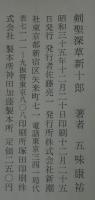 剣聖深草新十郎　著者　五味康祐
昭和三十五年十二月二十日印刷十二月二十五
日発行　発行者佐藤亮一　発行所株式会社新潮
社東京都新宿区矢来町七一電話東京三四一局代
表七一一一　九振替東京八〇八印刷所塚田印刷株
式会社　製本所神田加藤製本所　定価二五〇円